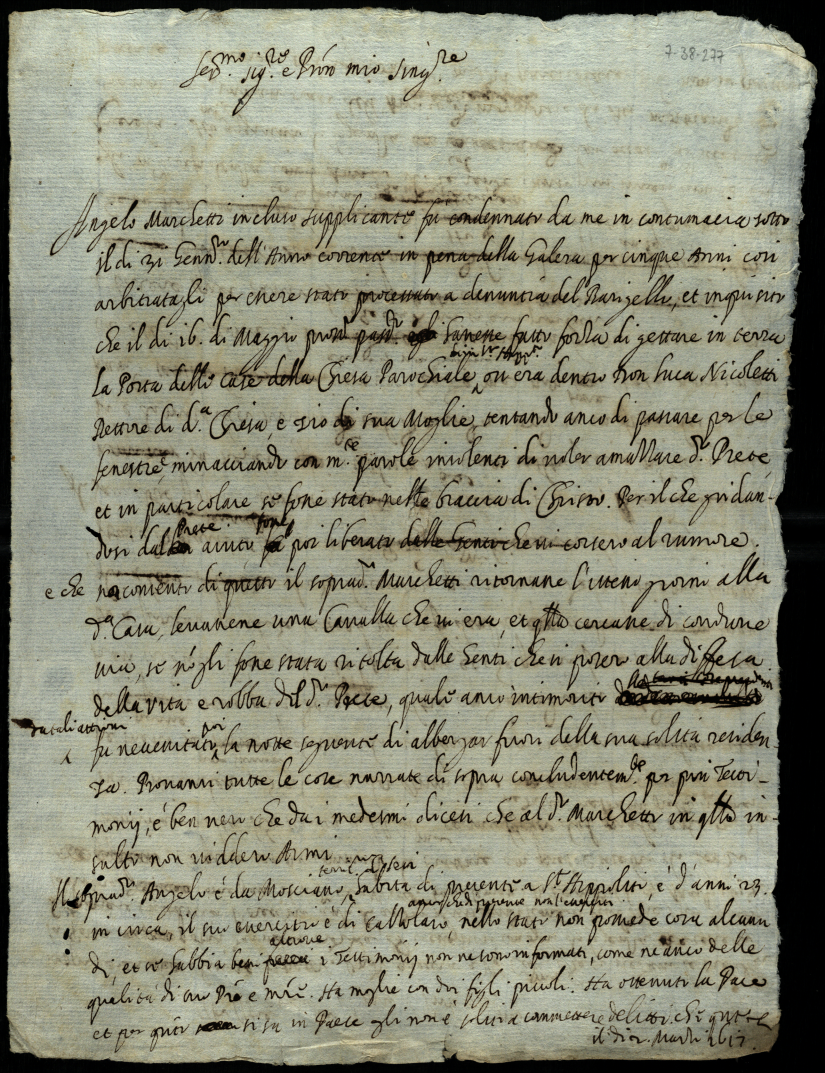 7-38-277
Ser.mo Sig.re e Pron mio Sing.re
Angelo Marchetti incluso supplicante fu condennato da me in contumacia sotto
il di 31 Genn.ro dell'Anno corrente in pena della Galera per cinque Anni cosi
arbitratagli per essere stato processato a denuntia del Barigello, et inquisito
che il di 16. di Maggio pross.o pass.o havesse fatto forza di gettare in terra
la Porta delle Case della Chiesa Parochiale, ov'era dentro Don Luca Nicoletti
Rettore di d.a Chiesa, e zio di sua Moglie, tentando anco di passare per le
fenestre, minacciando con m.te parole insolenti di voler amazzare d.o Prete
et in particolare se fosse stato nelle braccia di Christo. Per il che gridan-
dosi dal Prete aiuto fosse poi liberato dalle Genti che vi corsero al rumore.
e che non contento di questo il soprad.o Marchetti ritornasse l'istesso giorno alla
d.a Casa, levassene una Cavalla che vi era, et q.lla cercasse di condurre
via, se non gli fosse stata ritolta dalle Genti che si posero alla diffesa
della vita e robba del d.o Prete, quale anco intimorito
da tali attioni
fu necessitato poi la notte seguente di albergar fuori della sua solita residen-
za. Provansi tutte le cose narrate di sopra concludentem.te per piu Testi-
monij, è ben vero che da i medesmi dicesi che al d.o Marchetti in q.llo in-
sulto non viddero Armi.
Il soprad.o Angelo è da Mosciano, habita di presente a S.to Hippolito, è d'anni 23.
in circa, il suo esercitio è di Calzolaro, nello stato non possede cosa alcuna
di, et se habbia beni altrove i Testimonij non ne sono informati, come ne anco delle
qualita di suo Pre e mre. Ha moglie con doi figli piccoli. Ha ottenuto la Pace
et per q.nto si sa in Paese gli non è solito a commettere delitti. che q.nto
il di 2. Marzo 1617.